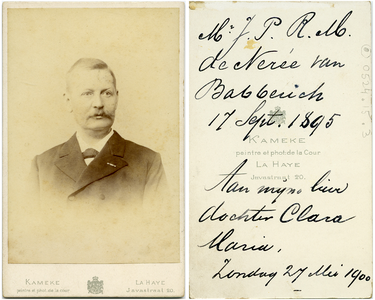 KAMEKE LA HAYE
peintre et phot de la Cour Javastraat 20.
Mr J. P. R. M.
de Nerée van
Babberich
17 Sept. 1895
KAMEKE
peintre et phot de la Cour
LA HAYE
Javastraat 20.
Aan mijne lieve
dochter Clara
Maria.
Zondag 27 Mei 1900